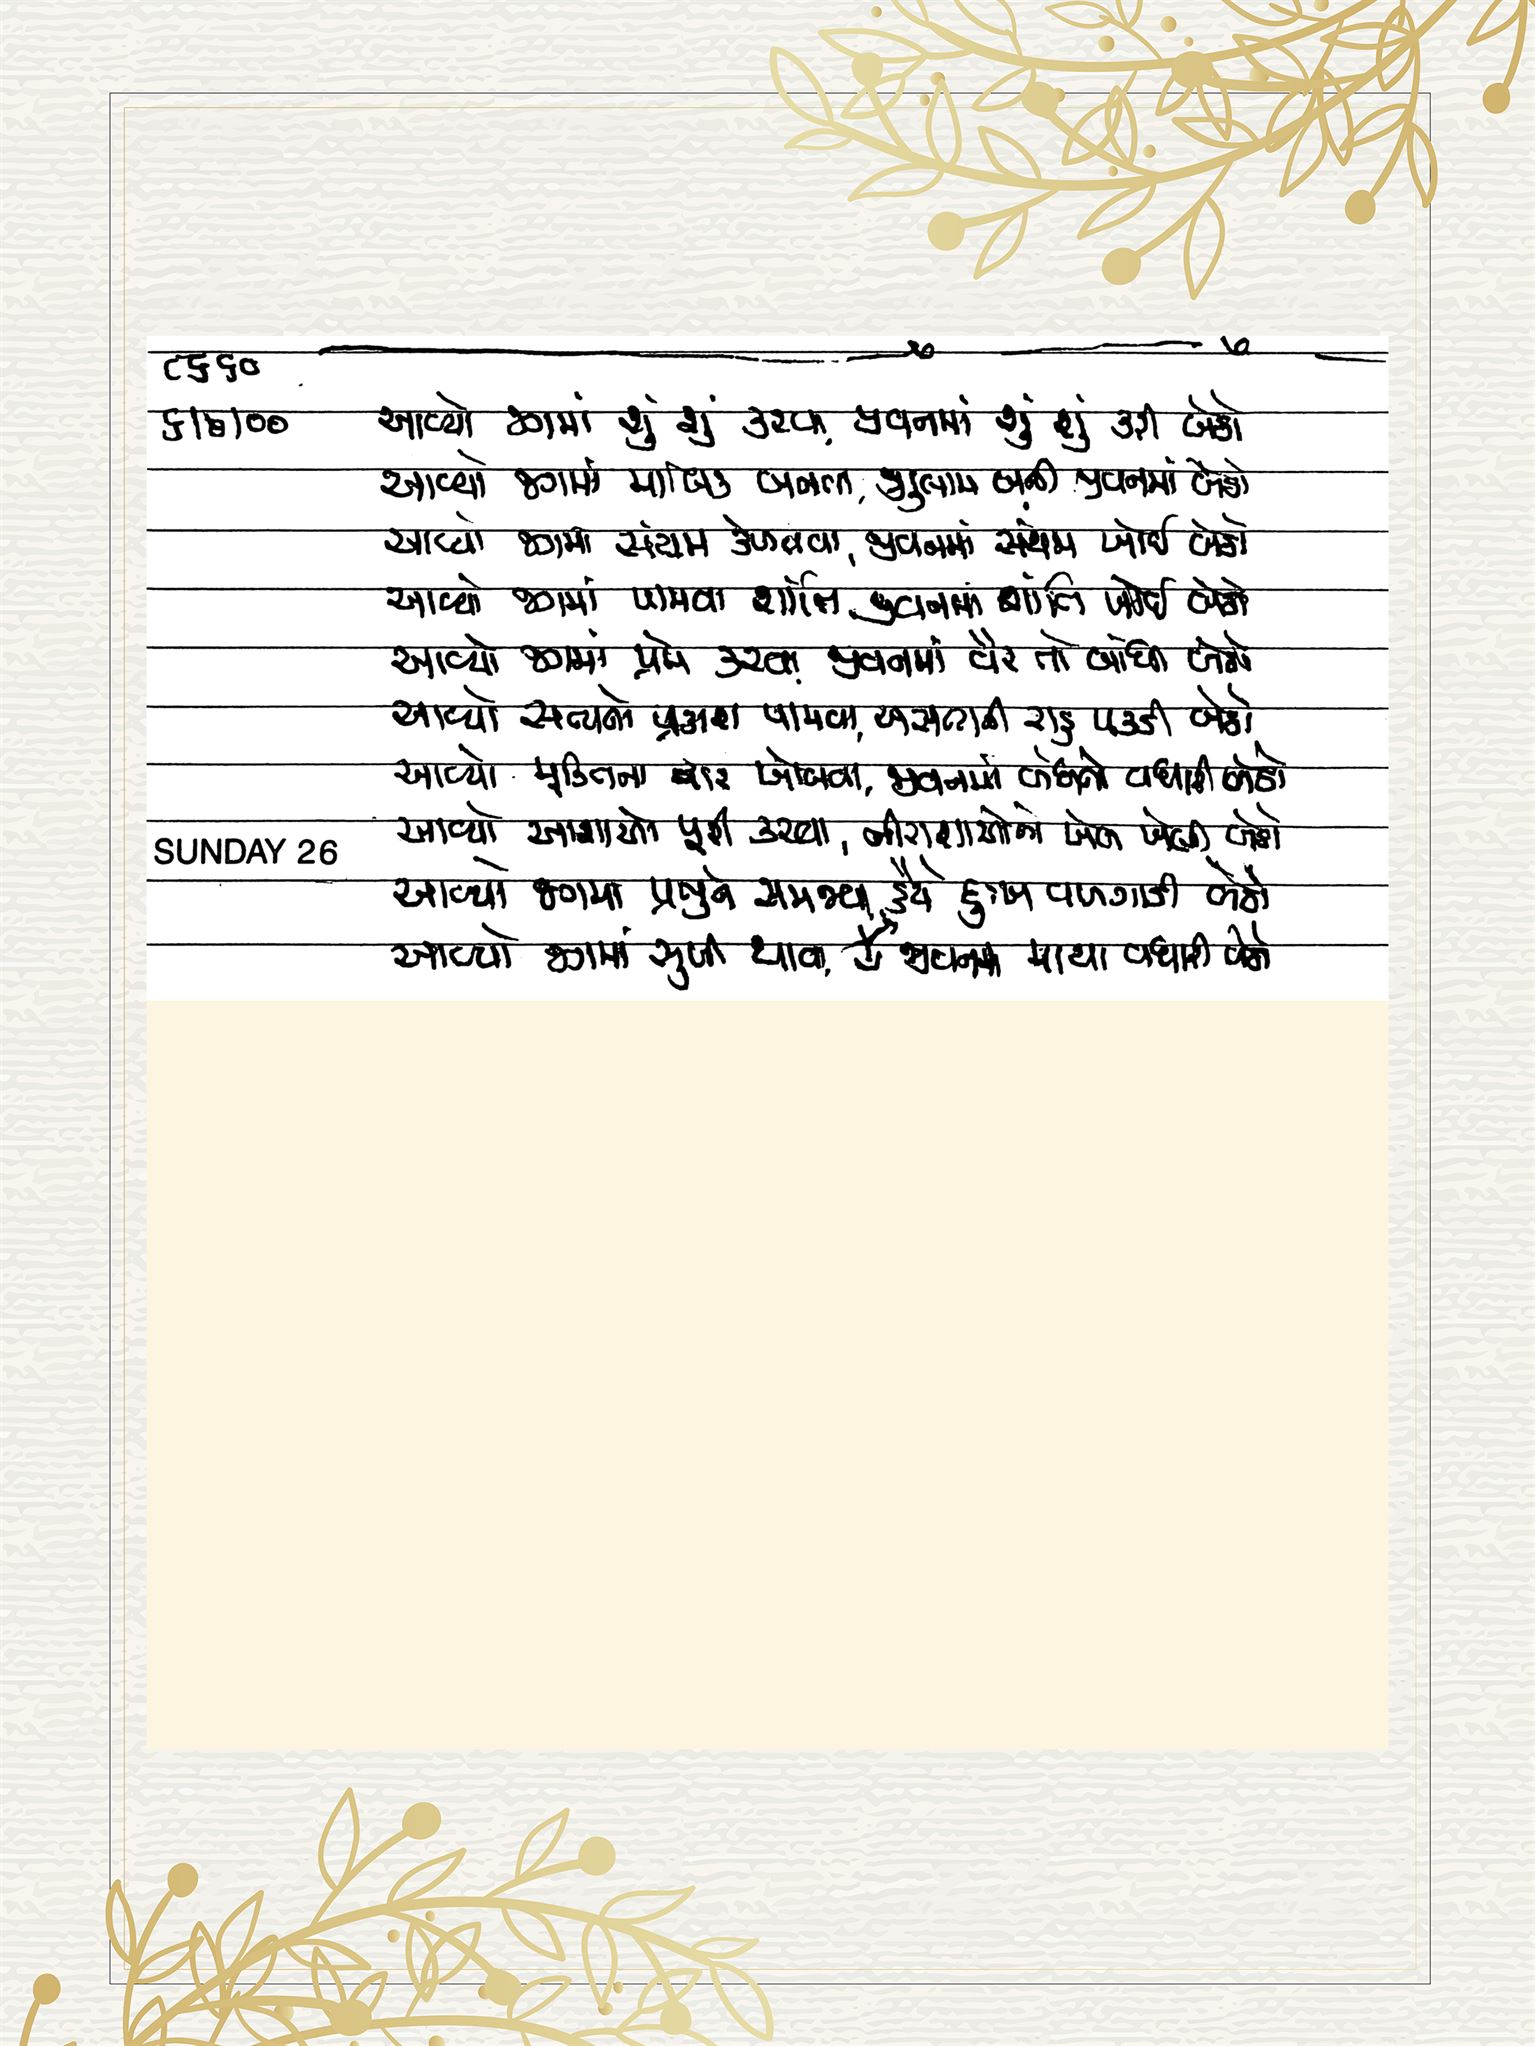 ૮૬૬૦
૬।૭।૦૦ આવ્યો જગમાં શું શું કરવા, જીવનમાં શું શું કરી બેઠો
આવ્યો જગમાં માલિક બનવા, ગુલામ બની જીવનમાં બેઠો
આવ્યો જગમાં સંયમ કેળવવા, જીવનમાં સંયમ ખોઈ બેઠો
આવ્યો જગમાં પામવા શાંતિ, જીવનમાં શાંતિ ખોઈ બેઠો
આવ્યો જગમાં પ્રેમ કરવા જીવનમાં વૈર તો બાંધી બેઠો
આવ્યો સત્યનો પ્રકાશ પામવા, અસત્યની રાહ પકડી બેઠો
આવ્યો મુક્તિના દ્વાર ખોલવા, જીવનમાં બંધનો વધારી બેઠો
આવ્યો આશાઓ પૂરી કરવા, નીરાશાઓનો ખેલ ખેલી બેઠો
SUNDAY 26
આવ્યો જગમાં પ્રભુને સમજવા, હૈયે દુઃખ વળગાડી બેઠો
આવ્યો જગમાં સુખી થાવા, જીવનમાં માયા વધારી બેઠો